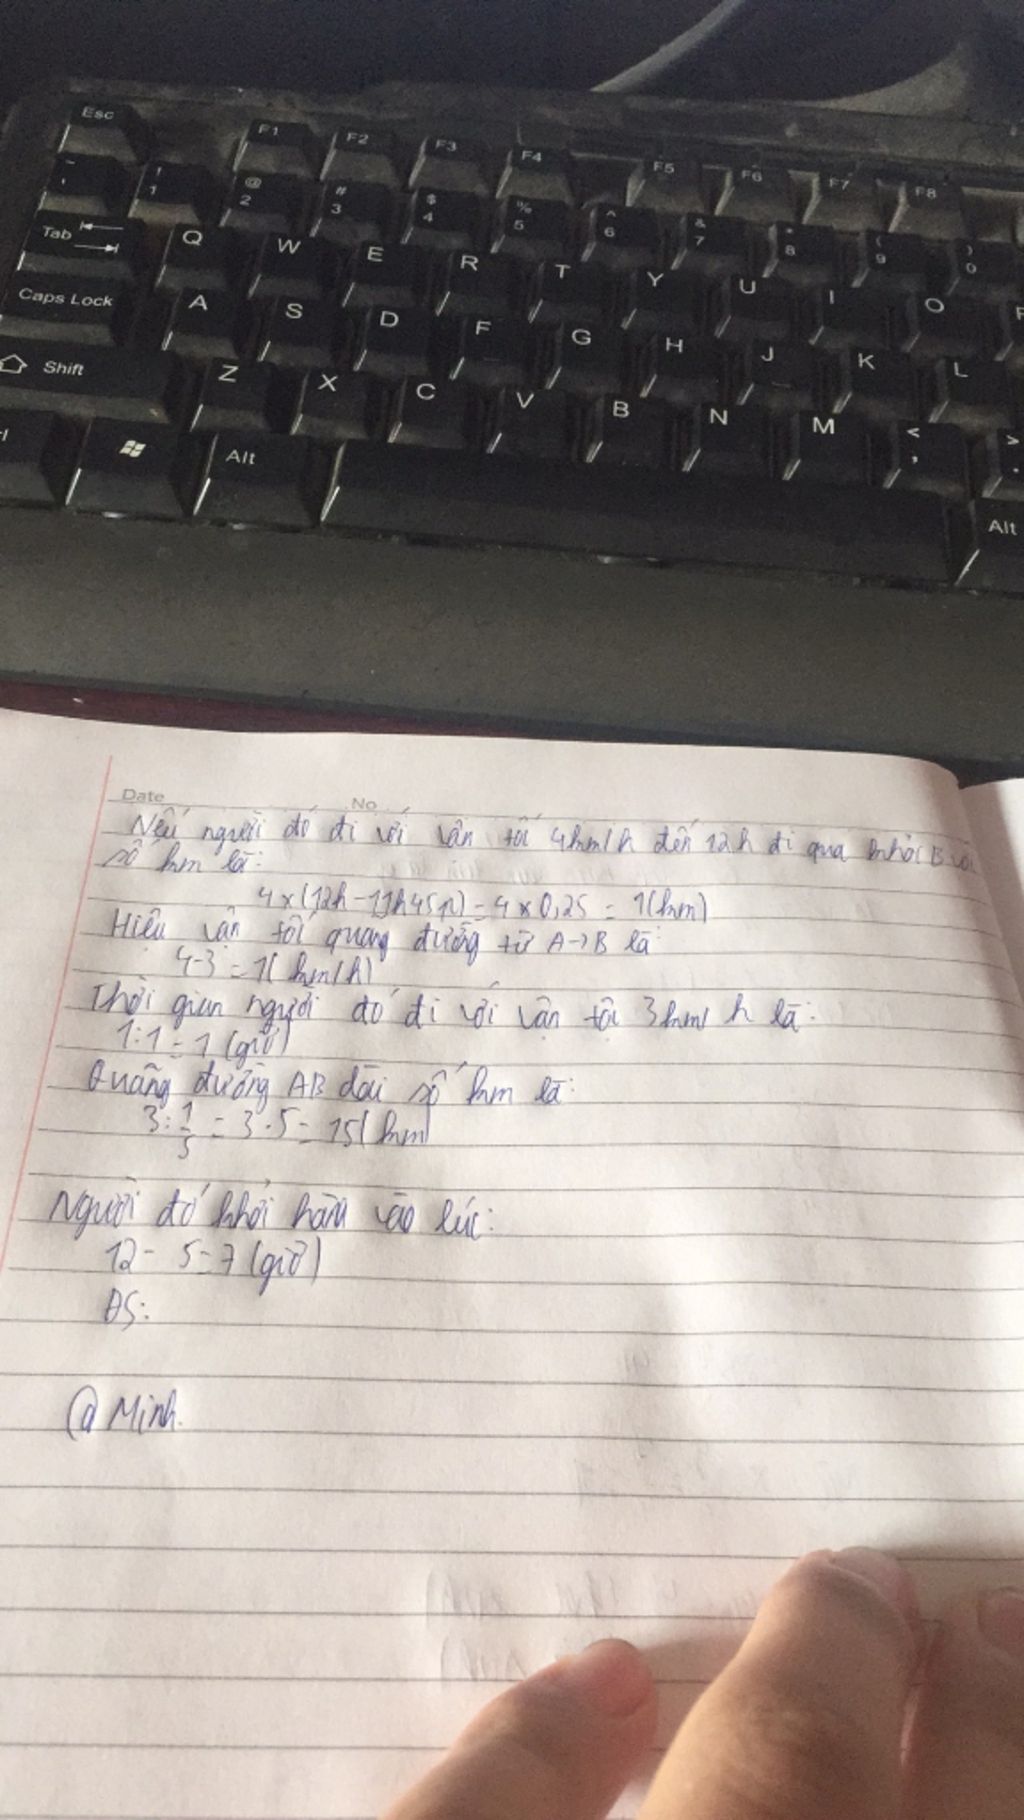 Esc F1 F2 F3 F4 F5 F6 F7 F8
~ ` ! 1 @ 2 # 3 $ 4 % 5 ^ 6 & 7 * 8 ( 9 ) 0
Tab Q W E R T Y U I O P
Caps Lock A S D F G H J K L
Shift Z X C V B N M < , > .
Alt Alt
Date No
Nếu người đó đi với vận tốc 4km/h đến 12h đi qua khỏi B với
số km là:
4 x (12h - 11h45p) = 4 x 0,25 = 1(km)
Hiệu vận tốc quang đường từ A→B là
4-3 = 1( km/h)
Thời gian người đó đi với vận tốc 3km/h là:
1:1 = 1 (giờ)
Quãng đường AB dài số km là:
3: 1/5 = 3.5 = 15( km)
Người đó khởi hàn vào lúc:
12 - 5 = 7 (giờ)
ĐS:
@ Minh.